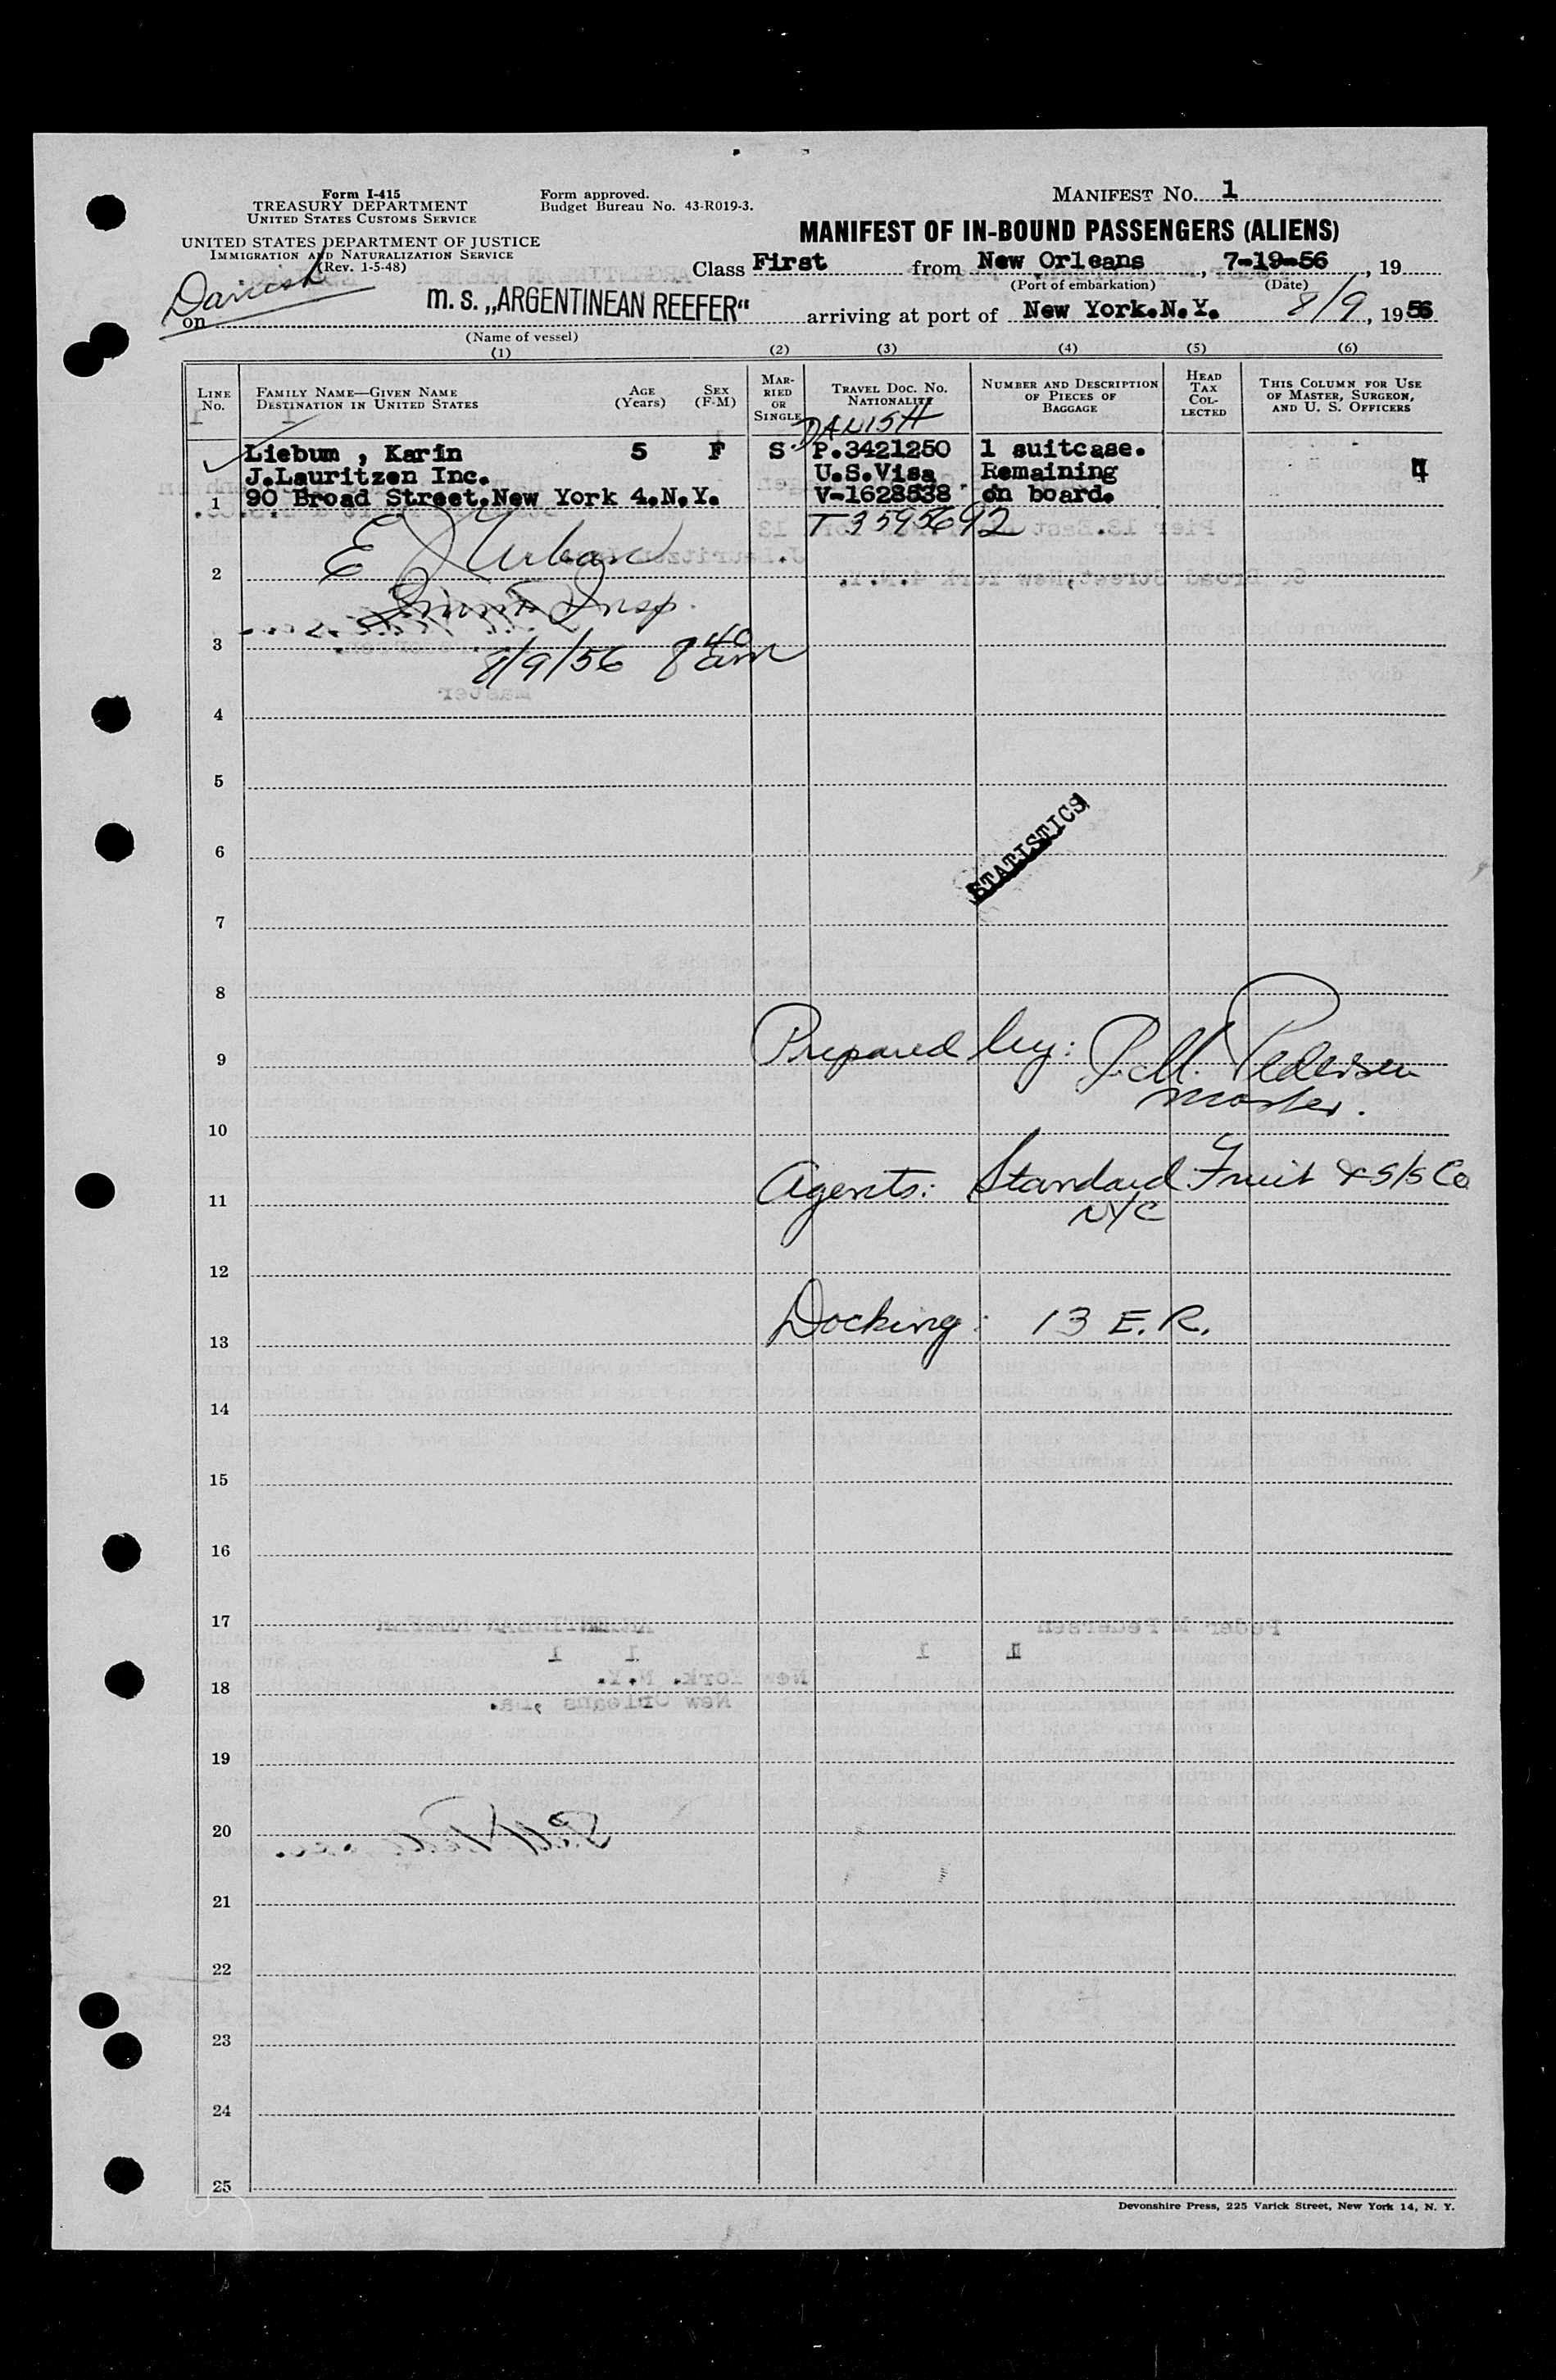 Form I-415
TREASURY DEPARTMENT
UNITED STATES CUSTOMS SERVICE
UNITED STATES DEPARTMENT OF JUSTICE
IMMIGRATION AND NATURALIZATION SERVICE
(Rev. 1-5-48)
Form approved.
Budget Bureau No. 43-R019-3.
MANIFEST No. 1
MANIFEST OF IN-BOUND PASSENGERS (ALIENS)
Class First from New Orleans, 7-19-56, 19
(Port of embarkation) (Date)
Danish
on m. s. „ARGENTINEAN REEFER" arriving at port of New York.N.Y. 8/9, 1956
(Name of vessel)
(1) (2) (3) (4) (5) (6)
LINE No.
FAMILY NAME—GIVEN NAME
DESTINATION IN UNITED STATES
AGE (Years)
SEX (F-M)
MARRIED OR SINGLE
TRAVEL DOC. NO.
NATIONALITY
NUMBER AND DESCRIPTION OF PIECES OF BAGGAGE
HEAD TAX COLLECTED
THIS COLUMN FOR USE OF MASTER, SURGEON, AND U. S. OFFICERS
DANISH
Liebum , Karin 5 F S P.3421250 1 suitcase.
J.Lauritzen Inc. U.S.Visa Remaining 4
1 90 Broad Street.New York 4.N.Y. V-1628538 on board.
T 3595692
E Urban
2
Immt Insp.
3
8/9/56 8 40 am
4
5
STATISTICS
6
7
8
9 Prepared by: P.M. Pedersen
master.
10
11 Agents: Standard Fruit & S/S Co
NYC
12
13 Docking: 13 E.R.
14
15
16
17
18
19
20
21
22
23
24
25
Devonshire Press, 225 Varick Street, New York 14, N. Y.